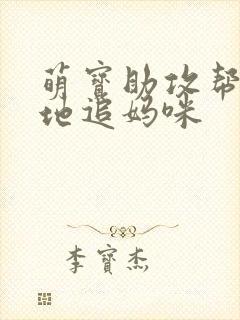 萌寶助攻帮
地追妈咪
李寶杰